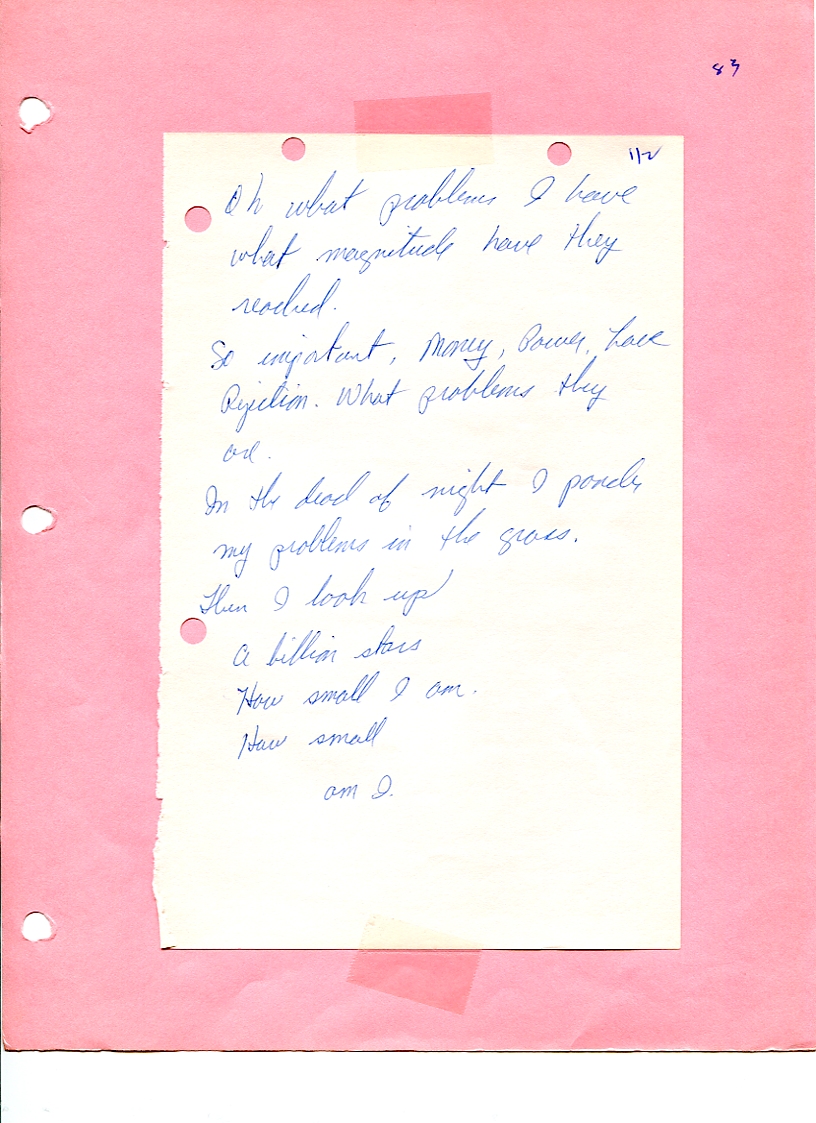 83
1/2
Oh what problems I have
what magnitude have they
reached.
So important, Money, Power, Love
Rejection. What problems they
are.
In the dead of night I ponder
my problems in the grass.
Then I look up
A billion stars
How small I am.
How small
am I.